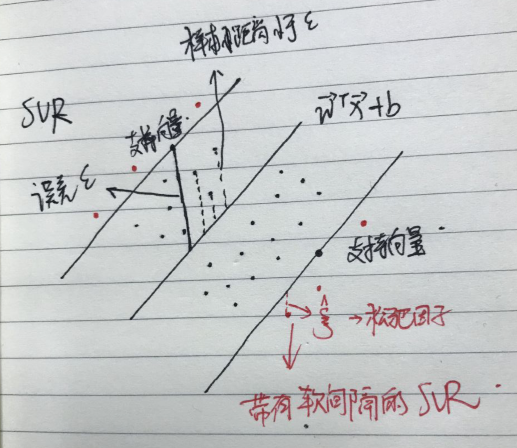 样本距离小于ε
SVR
支持向量
w⃗ᵀx⃗+b
误差ε
支持向量
ξ̂ → 松弛因子
带有软间隔的SVR.